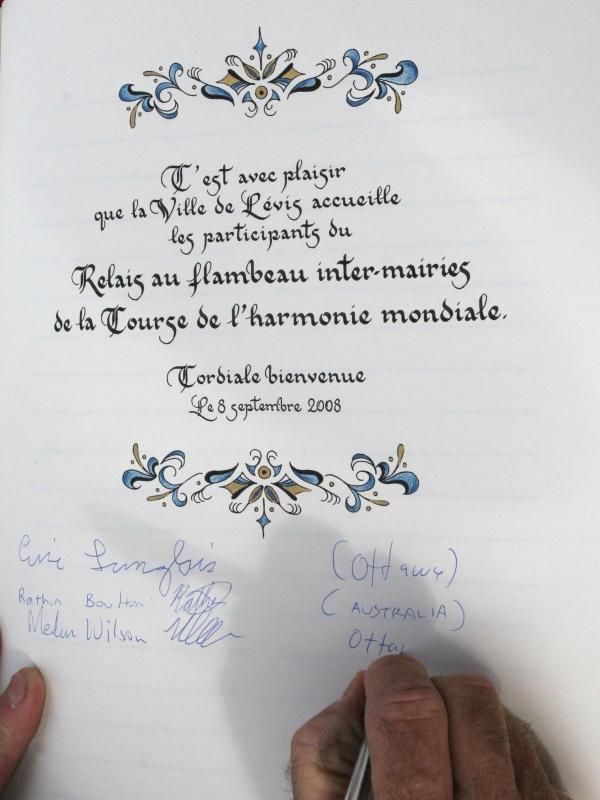 C'est avec plaisir
que la Ville de Lévis accueille
les participants du
Relais au flambeau inter-mairies
de la Course de l'harmonie mondiale.
Cordiale bienvenue
Le 8 septembre 2008
Langlois (Ottawa)
Rathin Boulton (AUSTRALIA)
Wilson Otta